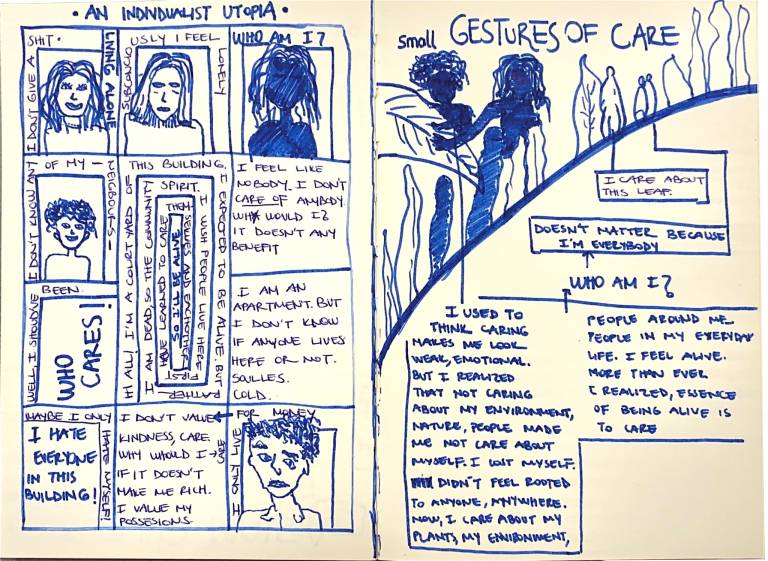 • AN INDIVIDUALIST UTOPIA •
I DON'T GIVE A
SHIT.
LIVING ALONE
SUBCONCIO
USLY I FEEL
LONELY
WHO AM I?
I DON'T KNOW ANY
OF MY —
NEIGBOURS —
WELL, I SHOULD'VE
BEEN
WHO
CARES!
HI ALL! I'M A COURTYARD OF
THIS BUILDING.
I EXPECTED TO BE ALIVE. BUT
RATHER
I AM DEAD, SO THE COMMUNITY
SPIRIT.
I WISH PEOPLE LIVE HERE
FIRST
HAVE LEARNED TO CARE
THEM
SELWES AND EACHOTHER
SO I'LL BE ALIVE
I FEEL LIKE
NOBODY. I DON'T
CARE OF ANYBODY.
WHY WOULD I?
IT DOESN'T ANY
BENEFIT
I AM AN
APARTMENT. BUT
I DON'T KNOW
IF ANYONE LIVES
HERE OR NOT.
SOULLES.
COLD.
MAYBE I ONLY
HATE MYSELF!
I HATE
EVERYONE
IN THIS
BUILDING!
I DON'T VALUE
KINDNESS, CARE.
WHY WOULD I →
IF IT DOESN'T
MAKE ME RICH.
I VALUE MY
POSSESIONS
FOR MONEY
CARE
I ONLY LIVE
small GESTURES OF CARE
I CARE ABOUT
THIS LEAF.
DOESN'T MATTER BECAUSE
I'M EVERYBODY
WHO AM I?
I USED TO
THINK CARING
MAKES ME LOOK
WEAK, EMOTIONAL.
BUT I REALIZED
THAT NOT CARING
ABOUT MY ENVIRONMENT,
NATURE, PEOPLE MADE
ME NOT CARE ABOUT
MYSELF. I LOST MYSELF.
DIDN'T FEEL ROOTED
TO ANYONE, ANYWHERE.
NOW, I CARE ABOUT MY
PLANTS, MY ENVIRONMENT,
PEOPLE AROUND ME
PEOPLE IN MY EVERYDAY
LIFE. I FEEL ALIVE.
MORE THAN EVER
I REALIZED, ESSENCE
OF BEING ALIVE IS
TO CARE